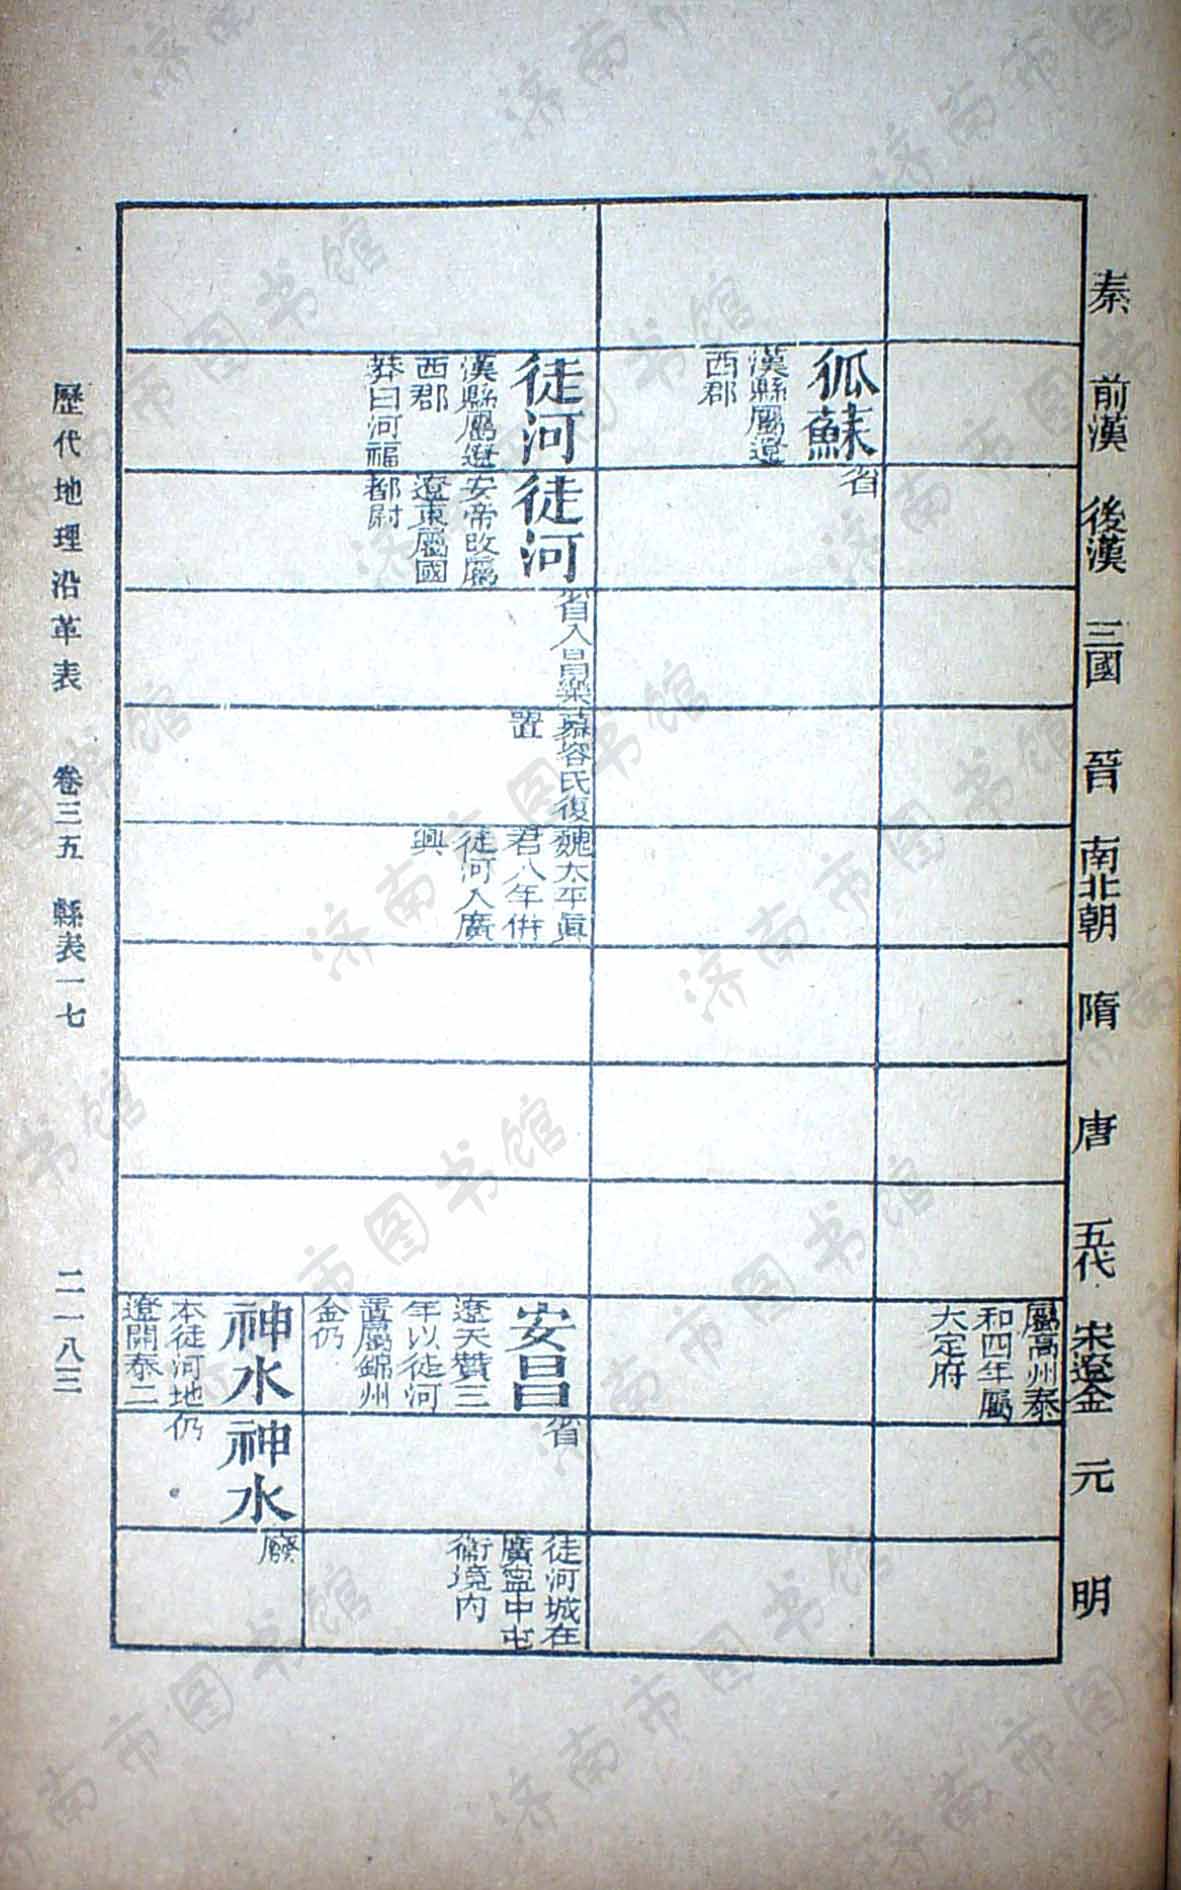 秦
前漢
後漢
三國
晉
南北朝
隋
唐
五代
宋遼金
元
明
屬高州泰
和四年屬
大定府
狐蘇
漢縣屬遼
西郡
省
徒河
漢縣屬遼
西郡
莽曰河福
徒河
安帝改屬
遼東屬國
都尉
省入昌樂
慕容氏復
置
魏太平眞
君八年併
徒河入廣
興
安昌
遼天贊三
年以徒河
置屬錦州
金仍
省
徒河城在
廣寧中屯
衞境內
神水
本徒河地仍
遼開泰二
神水
廢
歷代地理沿革表 卷三五 縣表一七 二一八三
济南市图书馆